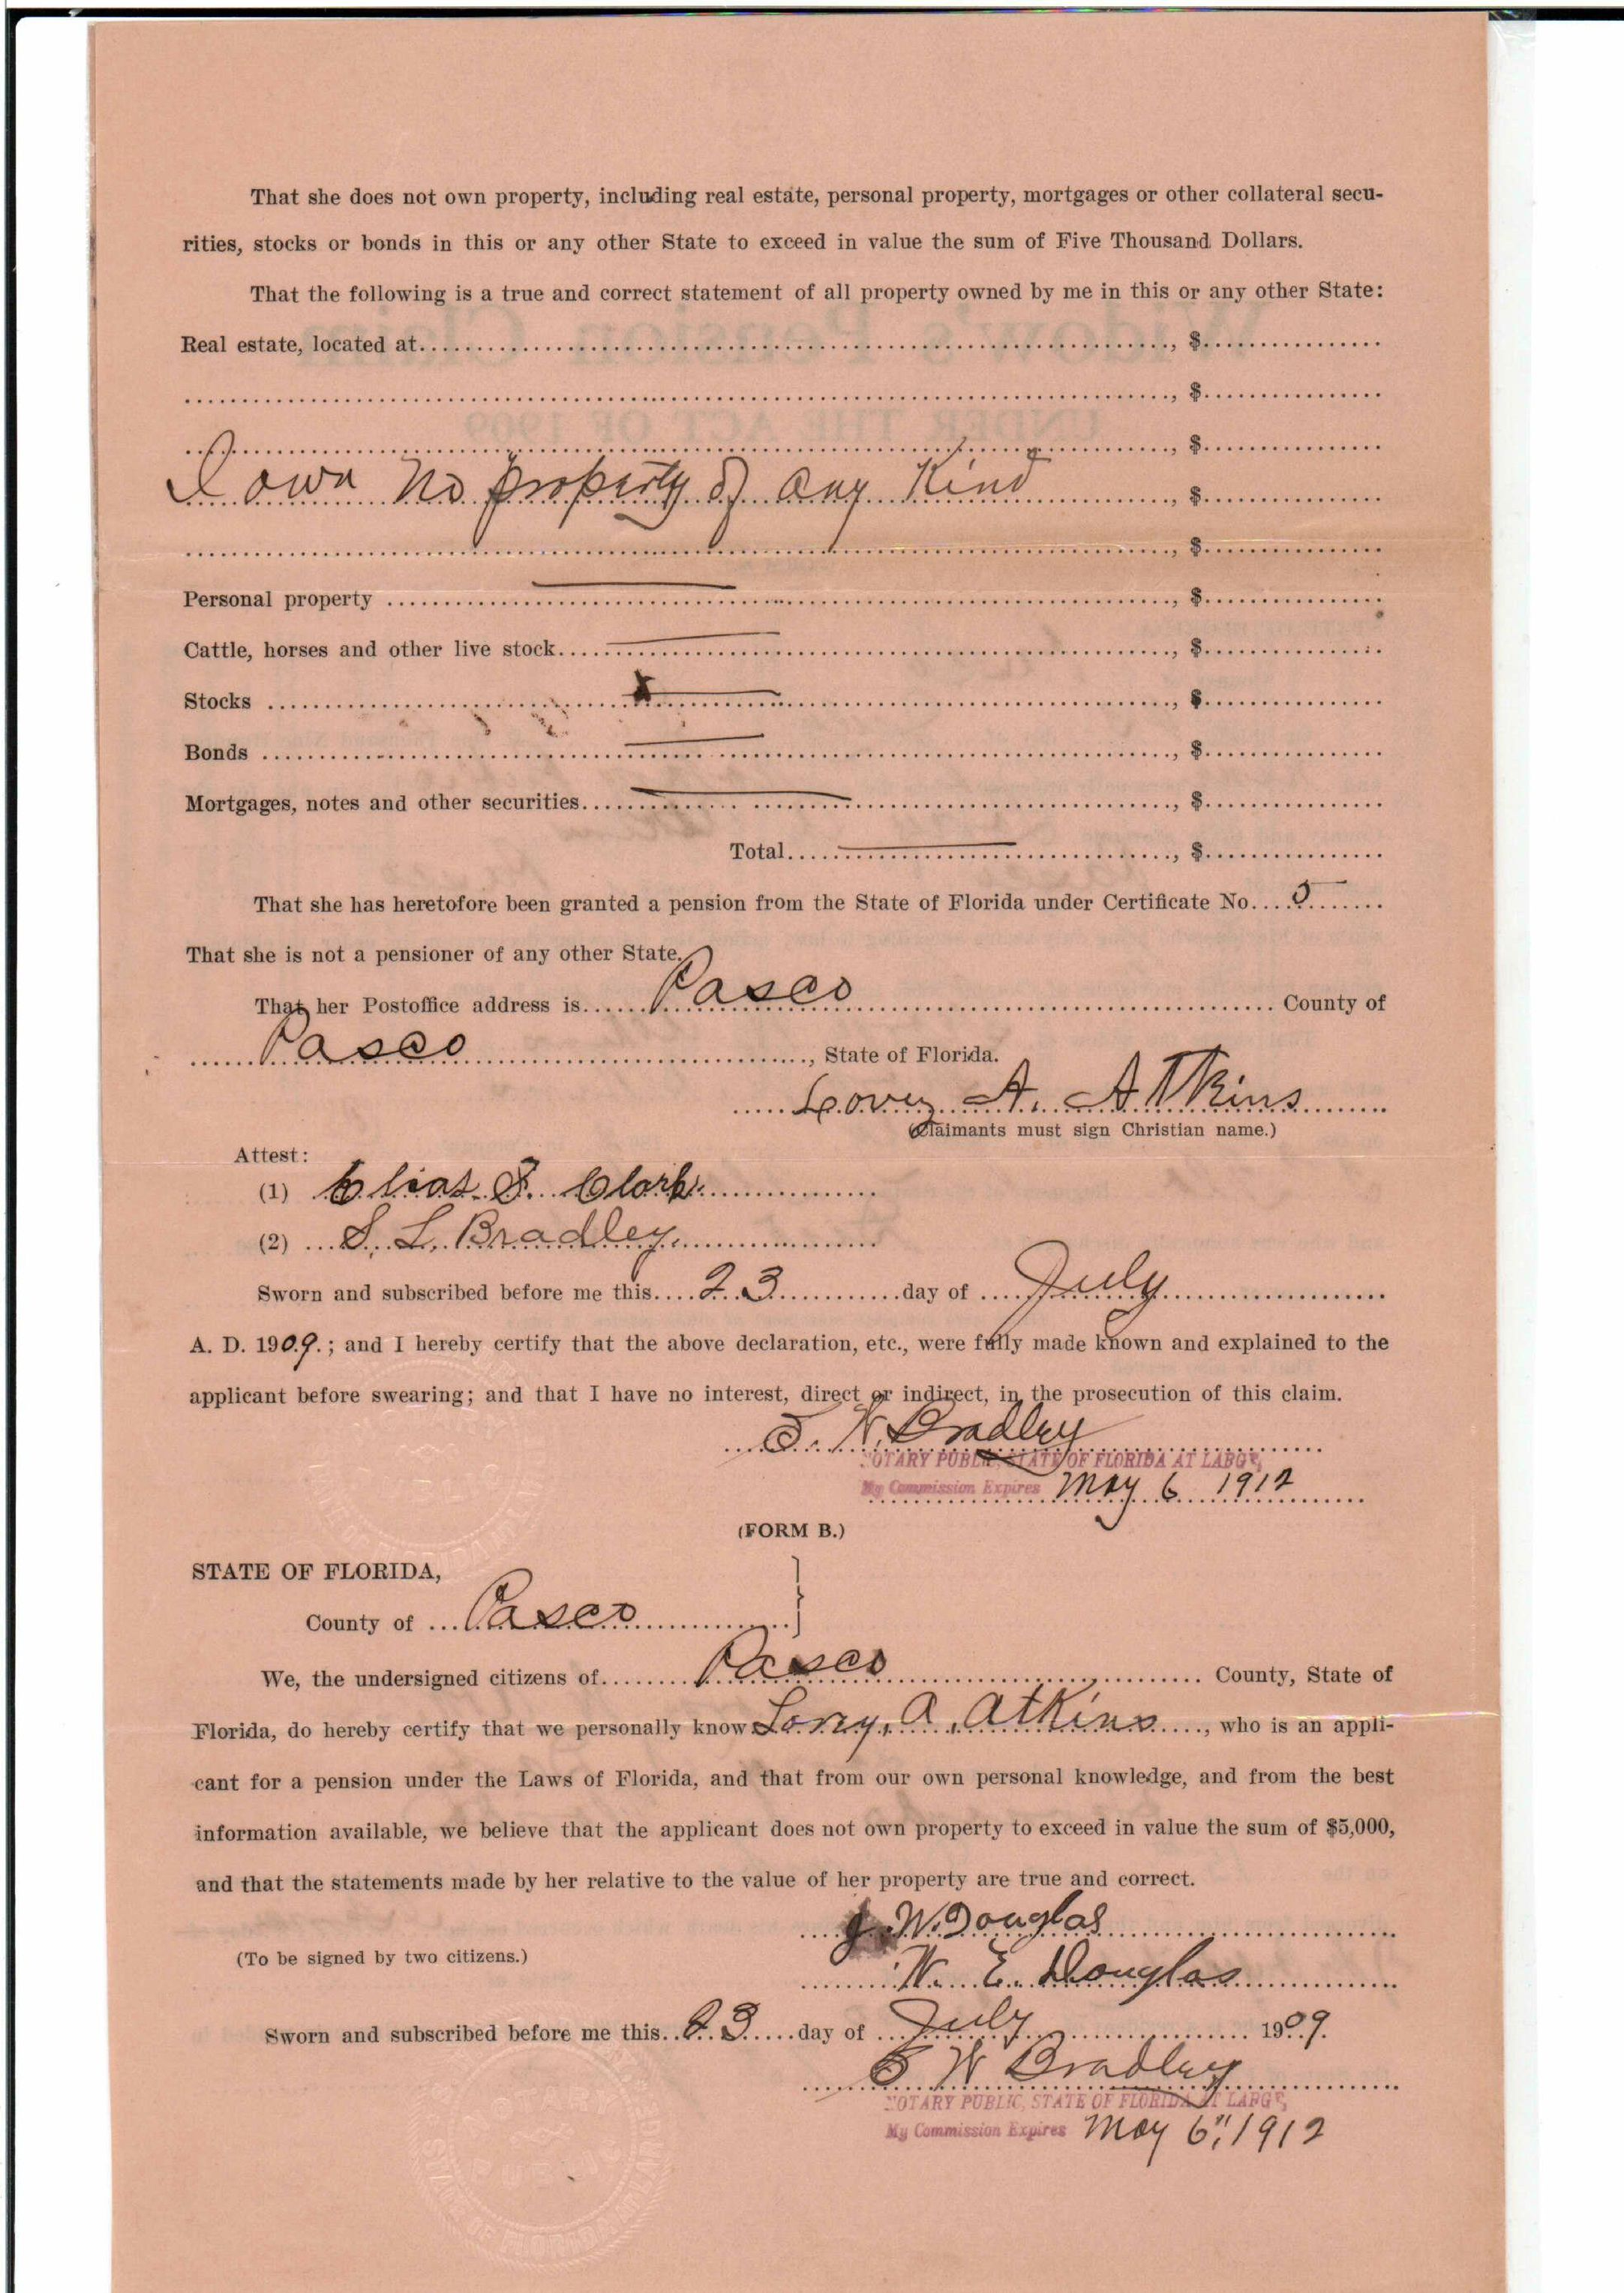 That she does not own property, including real estate, personal property, mortgages or other collateral secu-
rities, stocks or bonds in this or any other State to exceed in value the sum of Five Thousand Dollars.
That the following is a true and correct statement of all property owned by me in this or any other State:
Real estate, located at, $
, $
, $
I own no property of any Kind, $
, $
Personal property, $
Cattle, horses and other live stock, $
Stocks, $
Bonds, $
Mortgages, notes and other securities, $
Total, $
That she has heretofore been granted a pension from the State of Florida under Certificate No.
That she is not a pensioner of any other State.
That her Postoffice address is Pasco County of
Pasco, State of Florida.
Lovey A. Atkins
(Claimants must sign Christian name.)
Attest:
(1) Elias F. Clark.
(2) S. L. Bradley.
Sworn and subscribed before me this 23 day of July
A. D. 1909.; and I hereby certify that the above declaration, etc., were fully made known and explained to the
applicant before swearing; and that I have no interest, direct or indirect, in the prosecution of this claim.
W. Bradley
NOTARY PUBLIC, STATE OF FLORIDA AT LARGE,
My Commission Expires May 6 1912
(FORM B.)
STATE OF FLORIDA,
County of Pasco
We, the undersigned citizens of Pasco County, State of
Florida, do hereby certify that we personally know A. Atkins, who is an appli-
cant for a pension under the Laws of Florida, and that from our own personal knowledge, and from the best
information available, we believe that the applicant does not own property to exceed in value the sum of $5,000,
and that the statements made by her relative to the value of her property are true and correct.
J. W. Douglas
(To be signed by two citizens.)
W. E. Douglas
Sworn and subscribed before me this 23 day of July 1909.
W Bradley
NOTARY PUBLIC, STATE OF FLORIDA AT LARGE,
My Commission Expires May 6", 1912